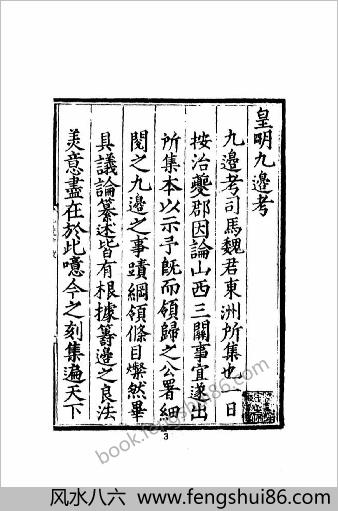 皇明九邊考
九邊考司馬魏君東洲所集也一日
按治夔郡因論山西三關事宜遂出
所集本以示予旣而領歸之公署細
閱之九邊之事蹟綱領條目燦然畢
具議論纂述皆有根據籌邊之良法
美意盡在於此噫今之刻集遍天下
3
book.fengshui86.com
风水八六 www.fengshui86.com